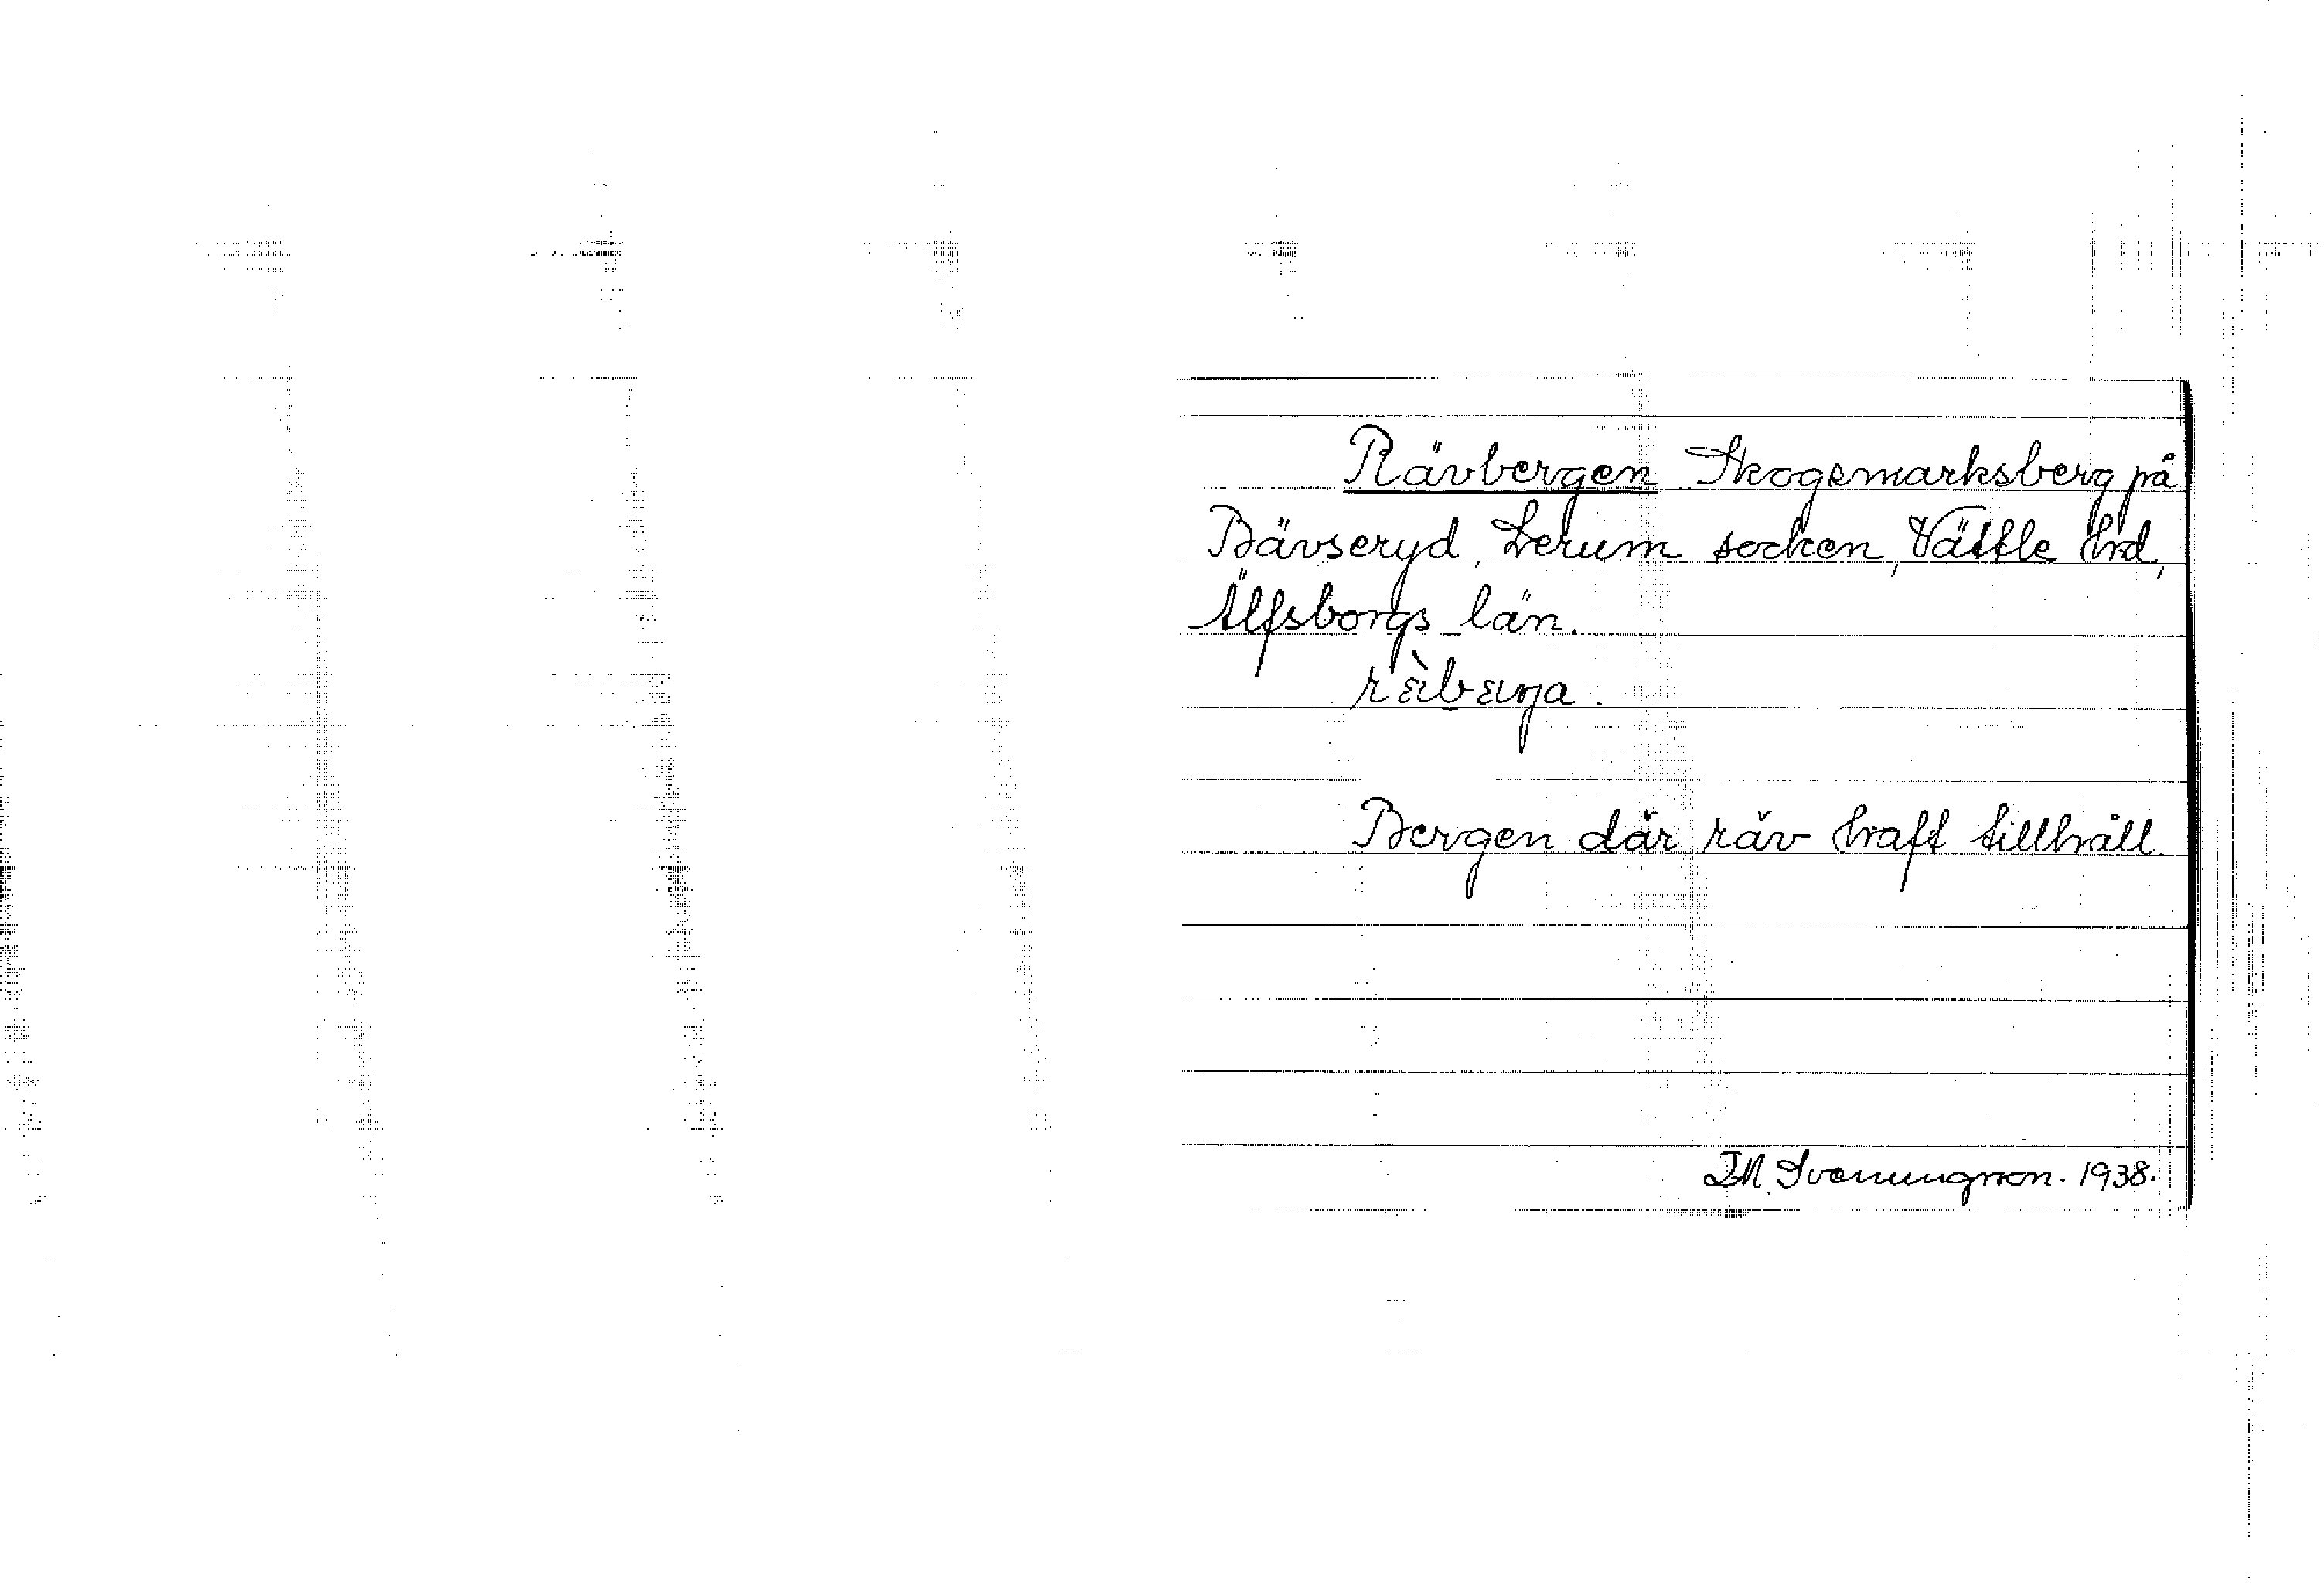 Rävbergen Skogsmarksberg på
Bävseryd, Lerum socken, Vättle hd,
Älfsborgs län.
Bergen där räv haft tillhåll.
Svenungsson. 1938.